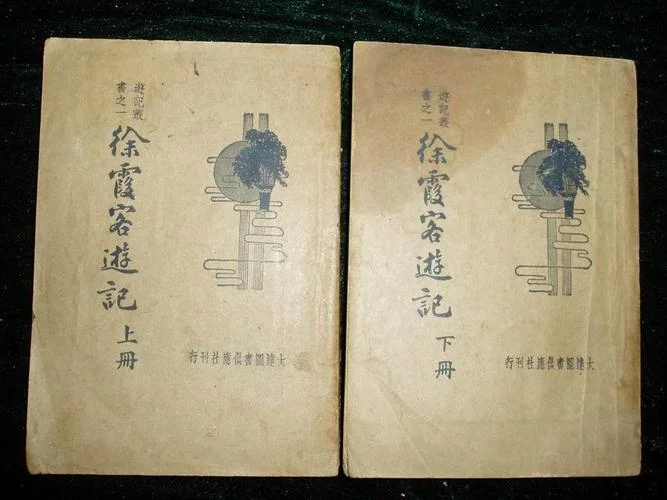 遊記叢
書之一
徐霞客遊記 上冊
大達圖書供應社刊行
遊記叢
書之一
徐霞客遊記 下冊
大達圖書供應社刊行